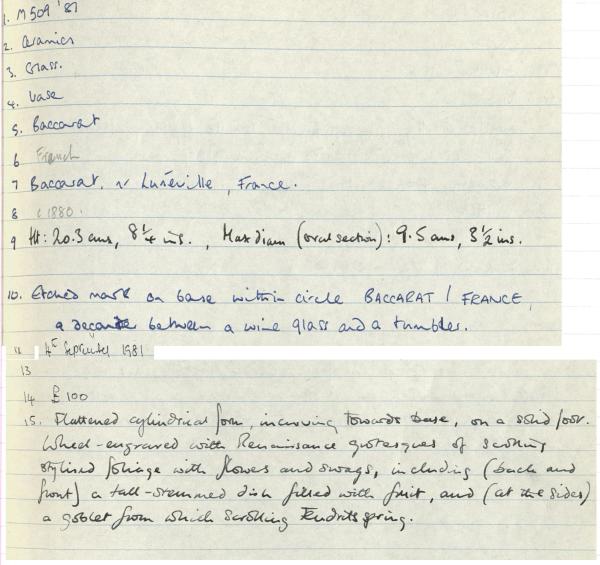 1. M 509 '81
2. Ceramics
3. Glass.
4. Vase
5. Baccarat
6 French
7 Baccarat, nr Lunéville, France.
8 c 1880.
9 Ht: 20.3 cms, 8 1/4 ins., Max diam (oval section): 9.5 cms, 3 1/2 ins.
10. Etched mark on base within circle BACCARAT / FRANCE,
a decanter between a wine glass and a tumbler.
11 September 1981
13
14 £100
15. Flattened cylindrical form, incurving towards base, on a solid foot.
Wheel-engraved with Renaissance grotesques of scrolling
stylised foliage with flowers and swags, including (back and
front) a tall-stemmed dish filled with fruit, and (at the sides)
a goblet from which scrolling tendrils spring.